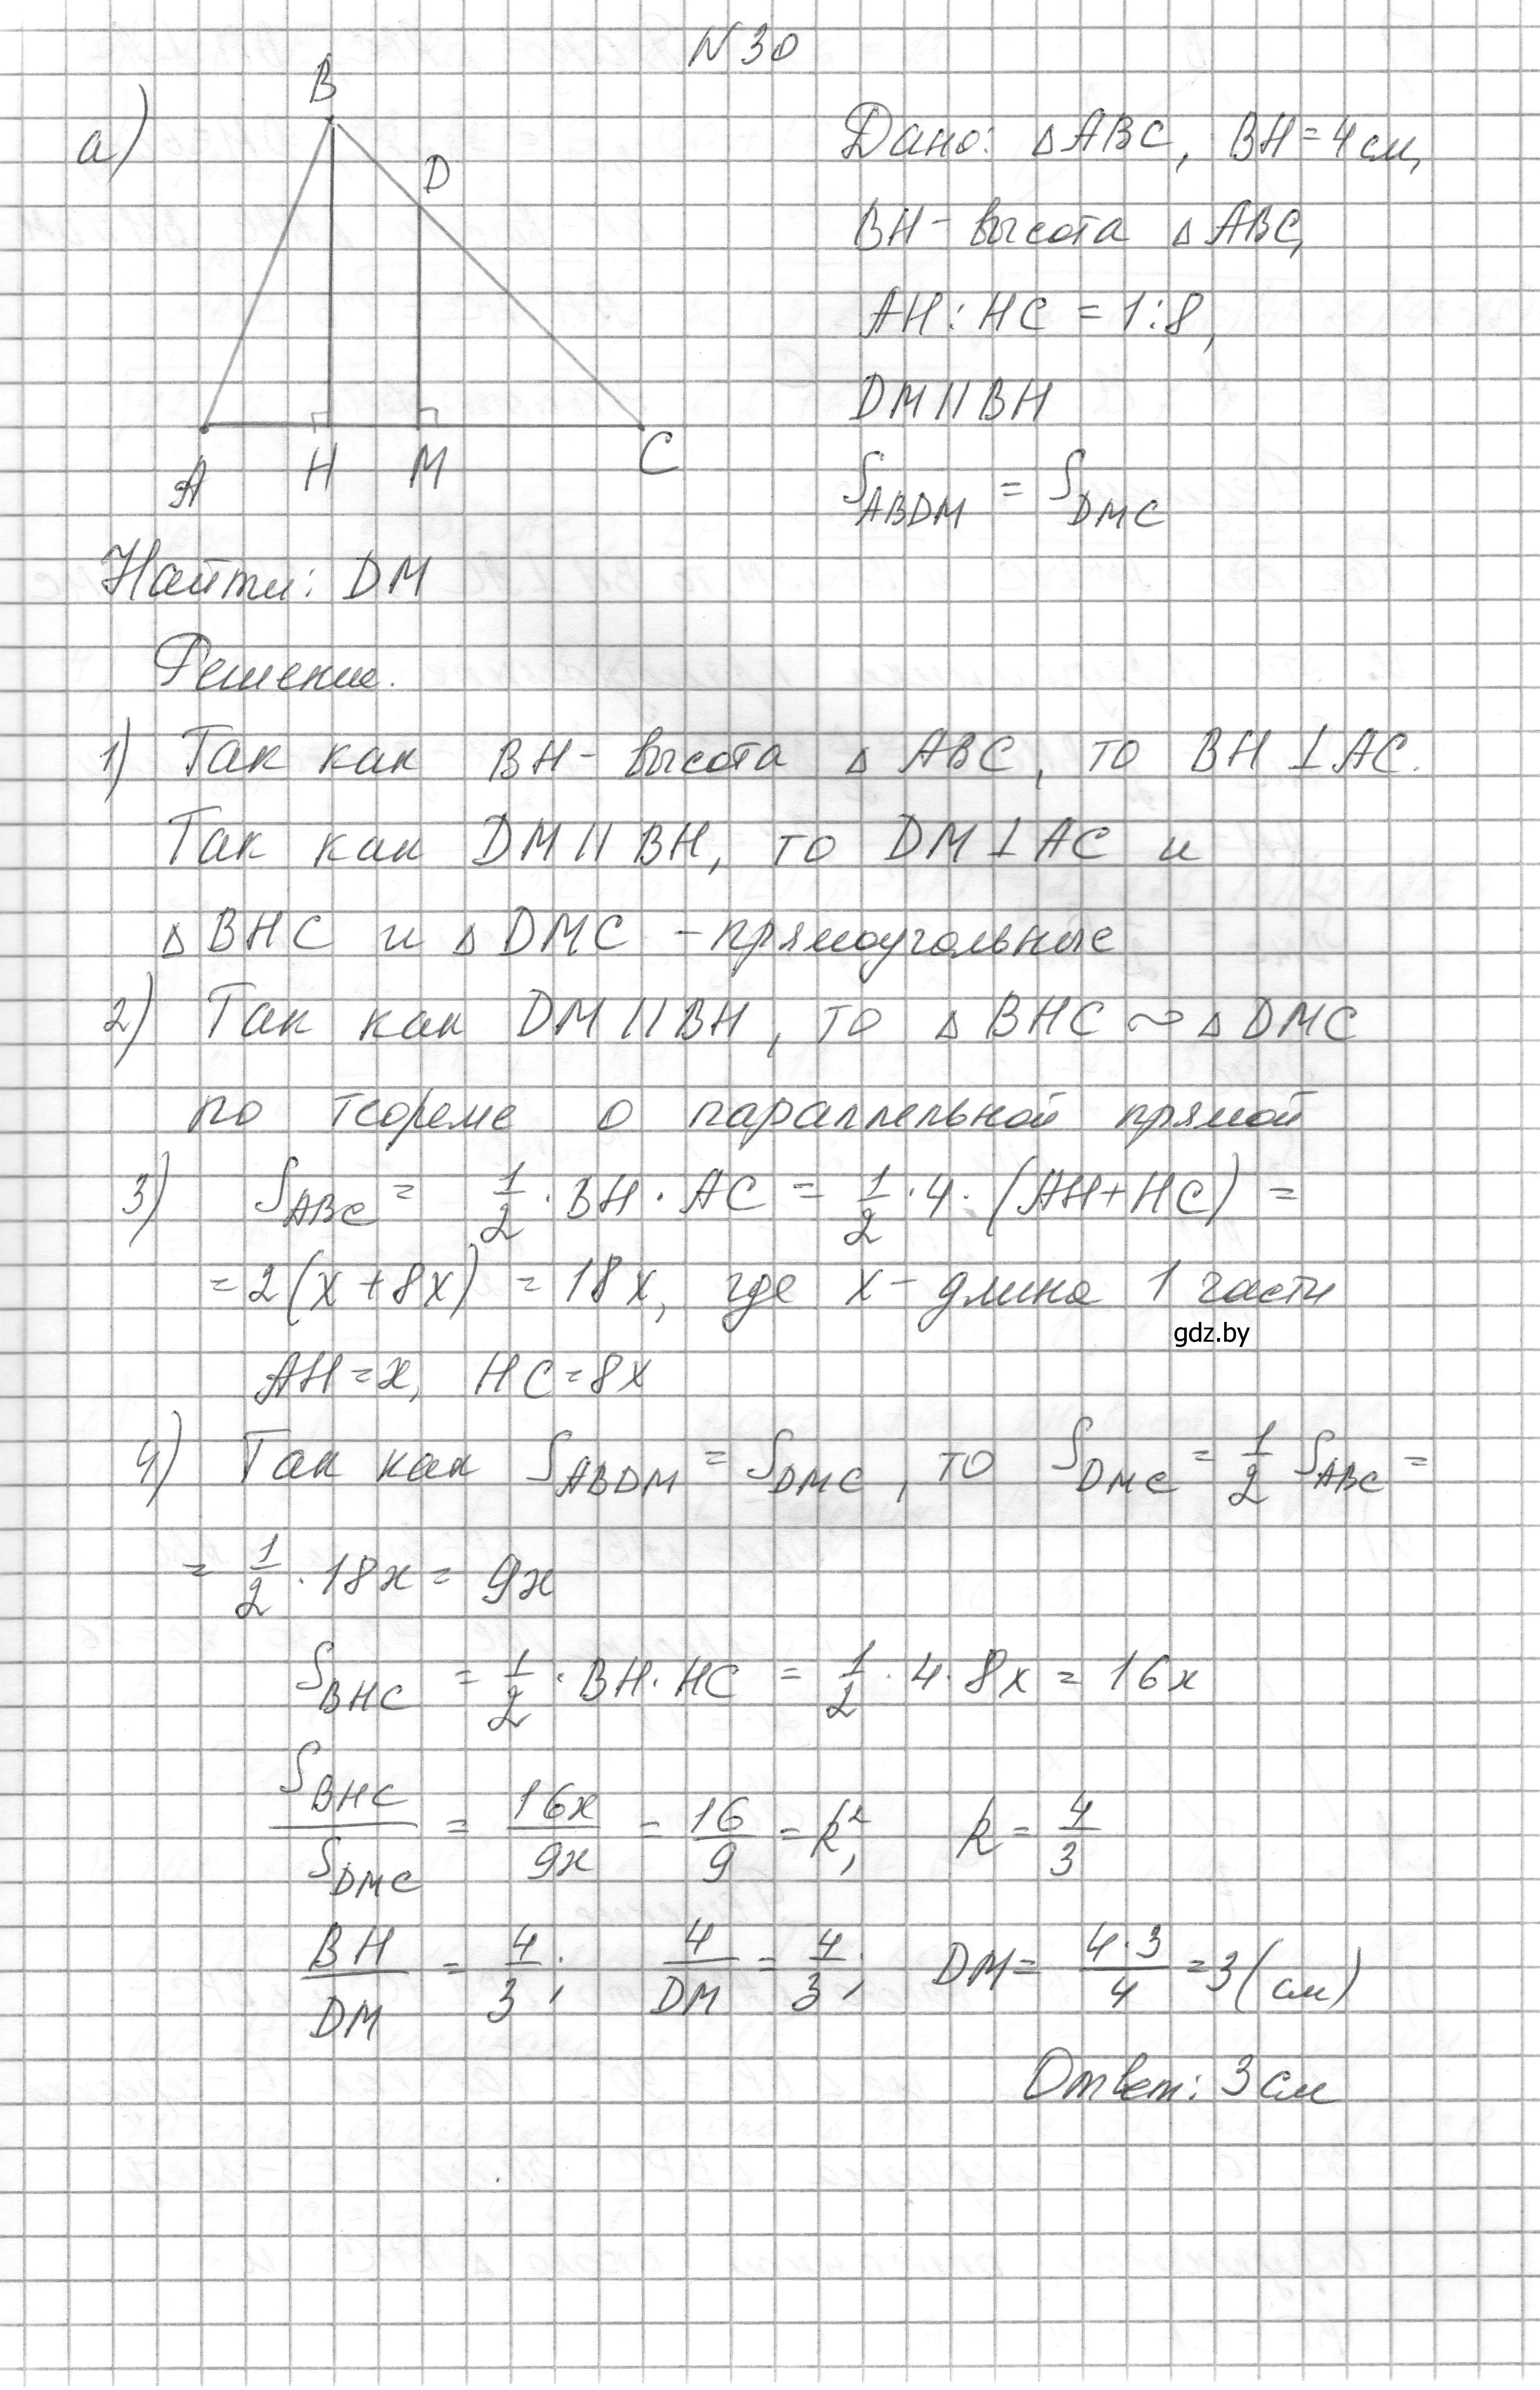 N 30
а)
B
D
A
H
M
C
Дано: △ABC, BH=4см,
BH - высота △ABC,
AH:HC = 1:8,
DM || BH
S_ABDM = S_DMC
Найти: DM
Решение.
1) Так как BH - высота △ABC, то BH ⊥ AC.
Так как DM || BH, то DM ⊥ AC и
△BHC и △DMC - прямоугольные
2) Так как DM || BH, то △BHC ~ △DMC
по теореме о параллельной прямой
3) S_ABC = 1/2 · BH · AC = 1/2 · 4 · (AH+HC) =
= 2(x+8x) = 18x, где x - длина 1 части
gdz.by
AH = x, HC = 8x
4) Так как S_ABDM = S_DMC, то S_DMC = 1/2 S_ABC =
= 1/2 · 18x = 9x
S_BHC = 1/2 · BH · HC = 1/2 · 4 · 8x = 16x
S_BHC/S_DMC = 16x/9x = 16/9 = k², k = 4/3
BH/DM = 4/3; 4/DM = 4/3; DM = 4·3/4 = 3 (см)
Ответ: 3 см